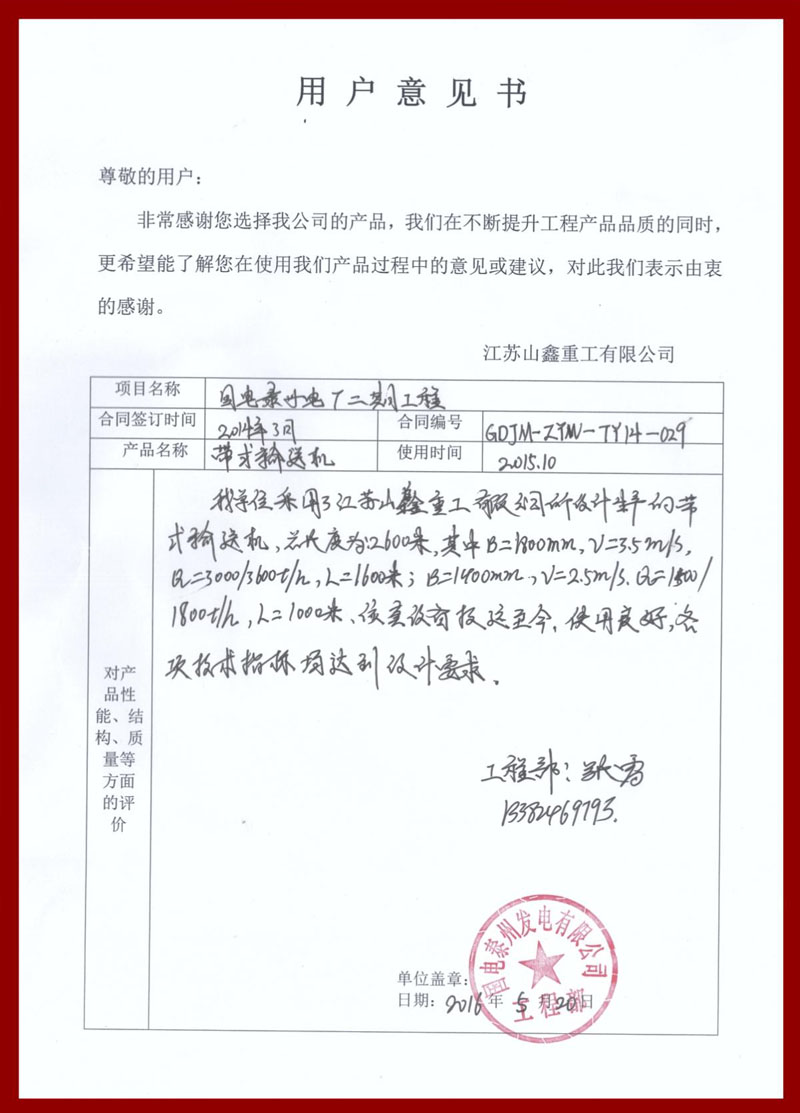 用户意见书
尊敬的用户：
非常感谢您选择我公司的产品，我们在不断提升工程产品品质的同时，
更希望能了解您在使用我们产品过程中的意见或建议，对此我们表示由衷
的感谢。
江苏山鑫重工有限公司
项目名称 国电泰州电厂二期工程
合同签订时间 2014年3月 合同编号 GDJM-ZYW-TY14-029
产品名称 带式输送机 使用时间 2015.10
对产
品性
能、结
构、质
量等
方面
的评
价
我单位采用了江苏山鑫重工有限公司所设计生产的带
式输送机，总长度为2600米，其中B=1800mm，V=3.5m/s，
Q=3000/3600t/h，L=1600米；B=1400mm，V=2.5m/s，Q=1500/
1800t/h，L=1000米，该套设备投运至今，使用良好，各
项技术指标均达到设计要求。
工程部：张雪
13382469793.
国电泰州发电有限公司
工程部
单位盖章：
日期：2016年5月20日